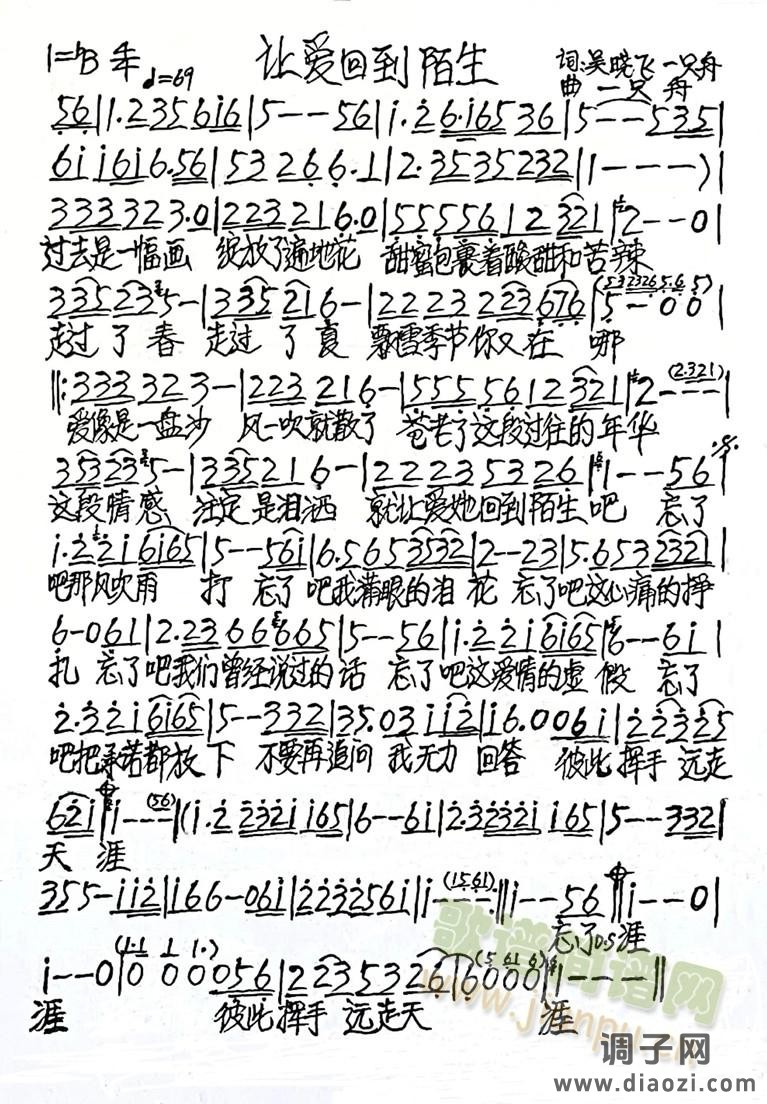 1=♭B 4/4 ♩=69 让爱回到陌生 词:吴晓飞 一只舟
曲 一只舟
56|1.235616|5--56|1.26.16536|5--535|
611616.56|53266.1|2.3535232|1---)|
33332 3.0|2232 16.0|555561 2 321|2--0|
过去是一幅画 绽放了遍地花 甜蜜包裹着酸甜和苦辣
335235-|335216-|22232 23676|5-00|
走过了春 走过了夏 飘雪季节你又在哪
‖:333323-|223216-|5555612321|2---(2.321)|
爱像是一盘沙 风一吹就散了 苍老了这段过往的年华
353235-|335216-|222353 26|1--56|
这段情感 注定是泪洒 就让爱她回到陌生吧 忘了
1.2216165|5--561|6.5653532|2--23|5.6532321|
吧那风吹雨 打 忘了吧我满眼的泪 花 忘了吧这心痛的挣
6-061|2.2366665|5--56|1.2216165|6--61|
扎 忘了吧我们曾经说过的话 忘了吧这爱情的虚 假 忘了
2.3216165|5--332|35.03112|16.0061|223 25
吧把承诺都放 下 不要再追问 我无力 回答 彼此挥手 远走
621|1---(56)|(1.22321165|6--61|2.32321165|5--332|
天 涯
355-112|166-061|2232561|1---(1561):‖1--56‖1--0|
忘了 D.S 涯
1--0|0000056|22353 26|6000|1---‖
涯 彼此挥手 远走天 涯
歌谱简谱网
www.jianpu.cn
调子网
www.diaozi.com